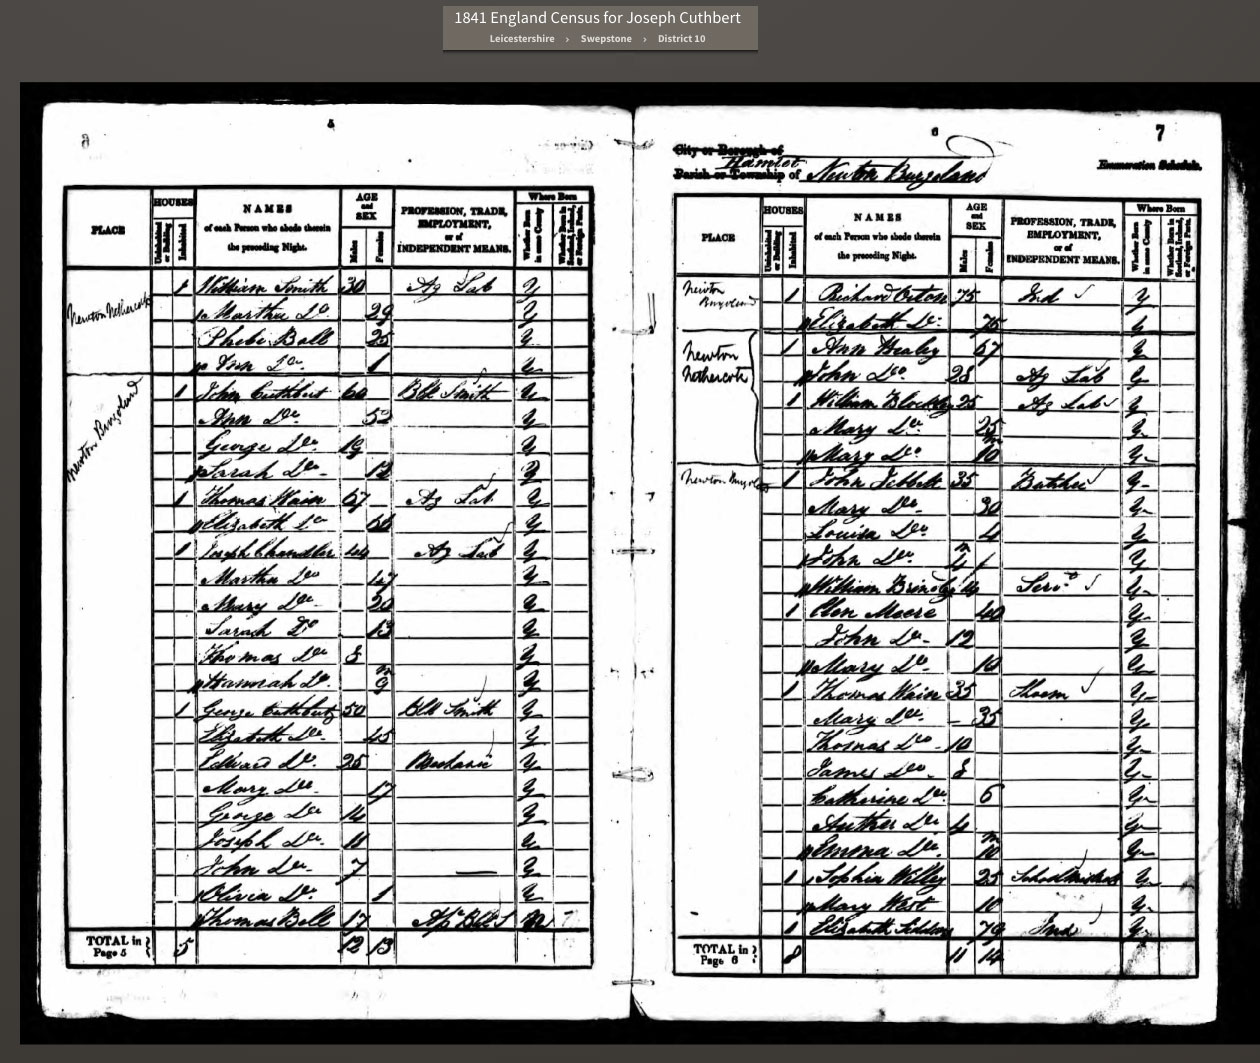 1841 England Census for Joseph Cuthbert
Leicestershire › Swepstone › District 10
5
PLACE HOUSES Uninhabited or Building Inhabited NAMES of each Person who abode therein the preceding Night. AGE and SEX Males Females PROFESSION, TRADE, EMPLOYMENT, or of INDEPENDENT MEANS. Where Born Whether Born in same County Whether Born in Scotland, Ireland, or Foreign Parts.
Newton Nethercote 1 William Smith 30 Ag Lab Y
Martha Do 29 Y
Phebe Ball 25 Y
Ann Do 1 Y
Newton Burgoland 1 John Cuthbert 60 Blk Smith Y
Ann Do 52 Y
George Do 19 Y
Sarah Do 12 Y
1 Thomas Wain 67 Ag Lab Y
Elizabeth Do Y
1 Joseph Chandler 44 Ag Lab Y
Martha Do 47 Y
Mary Do 20 Y
Sarah Do 13 Y
Thomas Do 8 Y
Hannah Do m 9 Y
1 George Cuthbert 50 Blk Smith Y
Elizabeth Do 45 Y
Edward Do 25 Mechanic Y
Mary Do 17 Y
George Do 14 Y
Joseph Do 11 Y
John Do 7 Y
Olivia Do 1 Y
Thomas Bell 17 Ap Blk S N
TOTAL in Page 5 5 12 13
6
7
City or Borough of
Hamlet
Parish or Township of Newton Burgoland
Enumeration Schedule.
PLACE HOUSES Uninhabited or Building Inhabited NAMES of each Person who abode therein the preceding Night. AGE and SEX Males Females PROFESSION, TRADE, EMPLOYMENT, or of INDEPENDENT MEANS. Where Born Whether Born in same County Whether Born in Scotland, Ireland, or Foreign Parts.
Newton Burgoland 1 Richard Orton 75 Ind Y
Elizabeth Do 75 Y
Newton Nethercote 1 Ann Healey 67 Y
John Do 28 Ag Lab Y
1 William Blockley 25 Ag Lab Y
Mary Do 25 Y
Mary Do m 10 Y
Newton Burgoland 1 John Jebbett 35 Butcher Y
Mary Do 30 Y
Louisa Do 4 Y
John Do m 4 Y
William 14 Servt Y
1 Moore 40 Y
John Do 12 Y
Mary Do 10 Y
1 Thomas Wain 35 Shoem Y
Mary Do 35 Y
Thomas Do 10 Y
James Do 8 Y
Catherine Do 6 Y
Do 4 Y
Emma Do m 10 Y
1 Sophia Willey 25 Schoolmistress Y
Mary West 10 Y
1 Elizabeth 79 Ind Y
TOTAL in Page 6 8 11 14